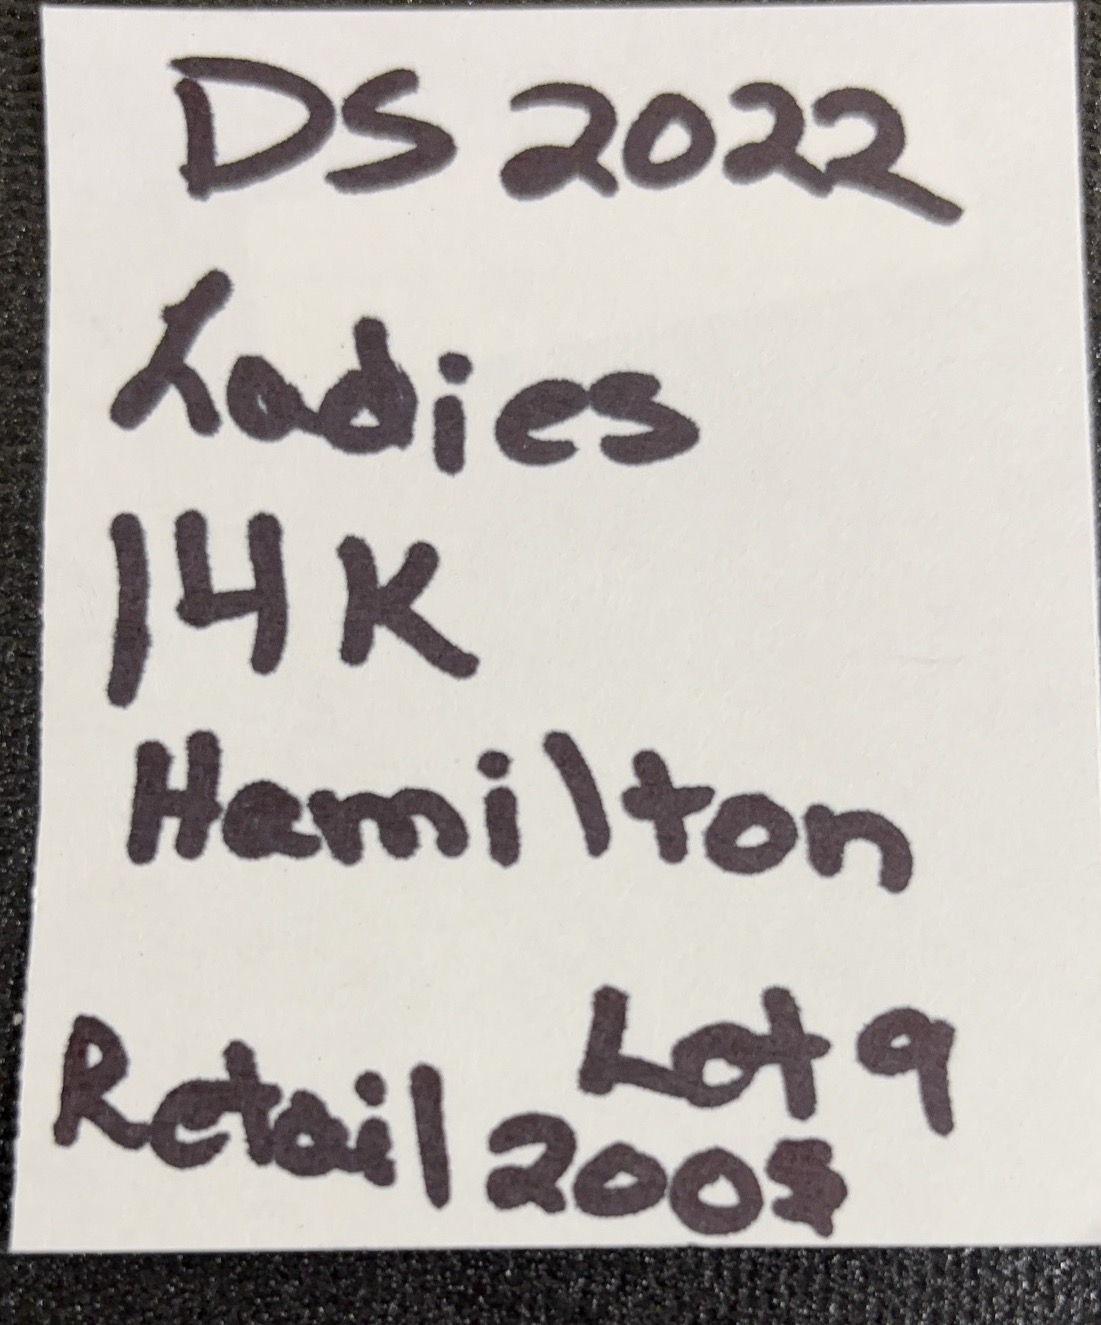 DS 2022
Ladies
14K
Hamilton
Lot 9
Retail 200$